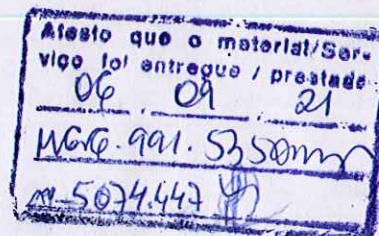 Atesto que o material/Ser-
viço foi entregue / prestado
06 09 21
991.53
5074.447